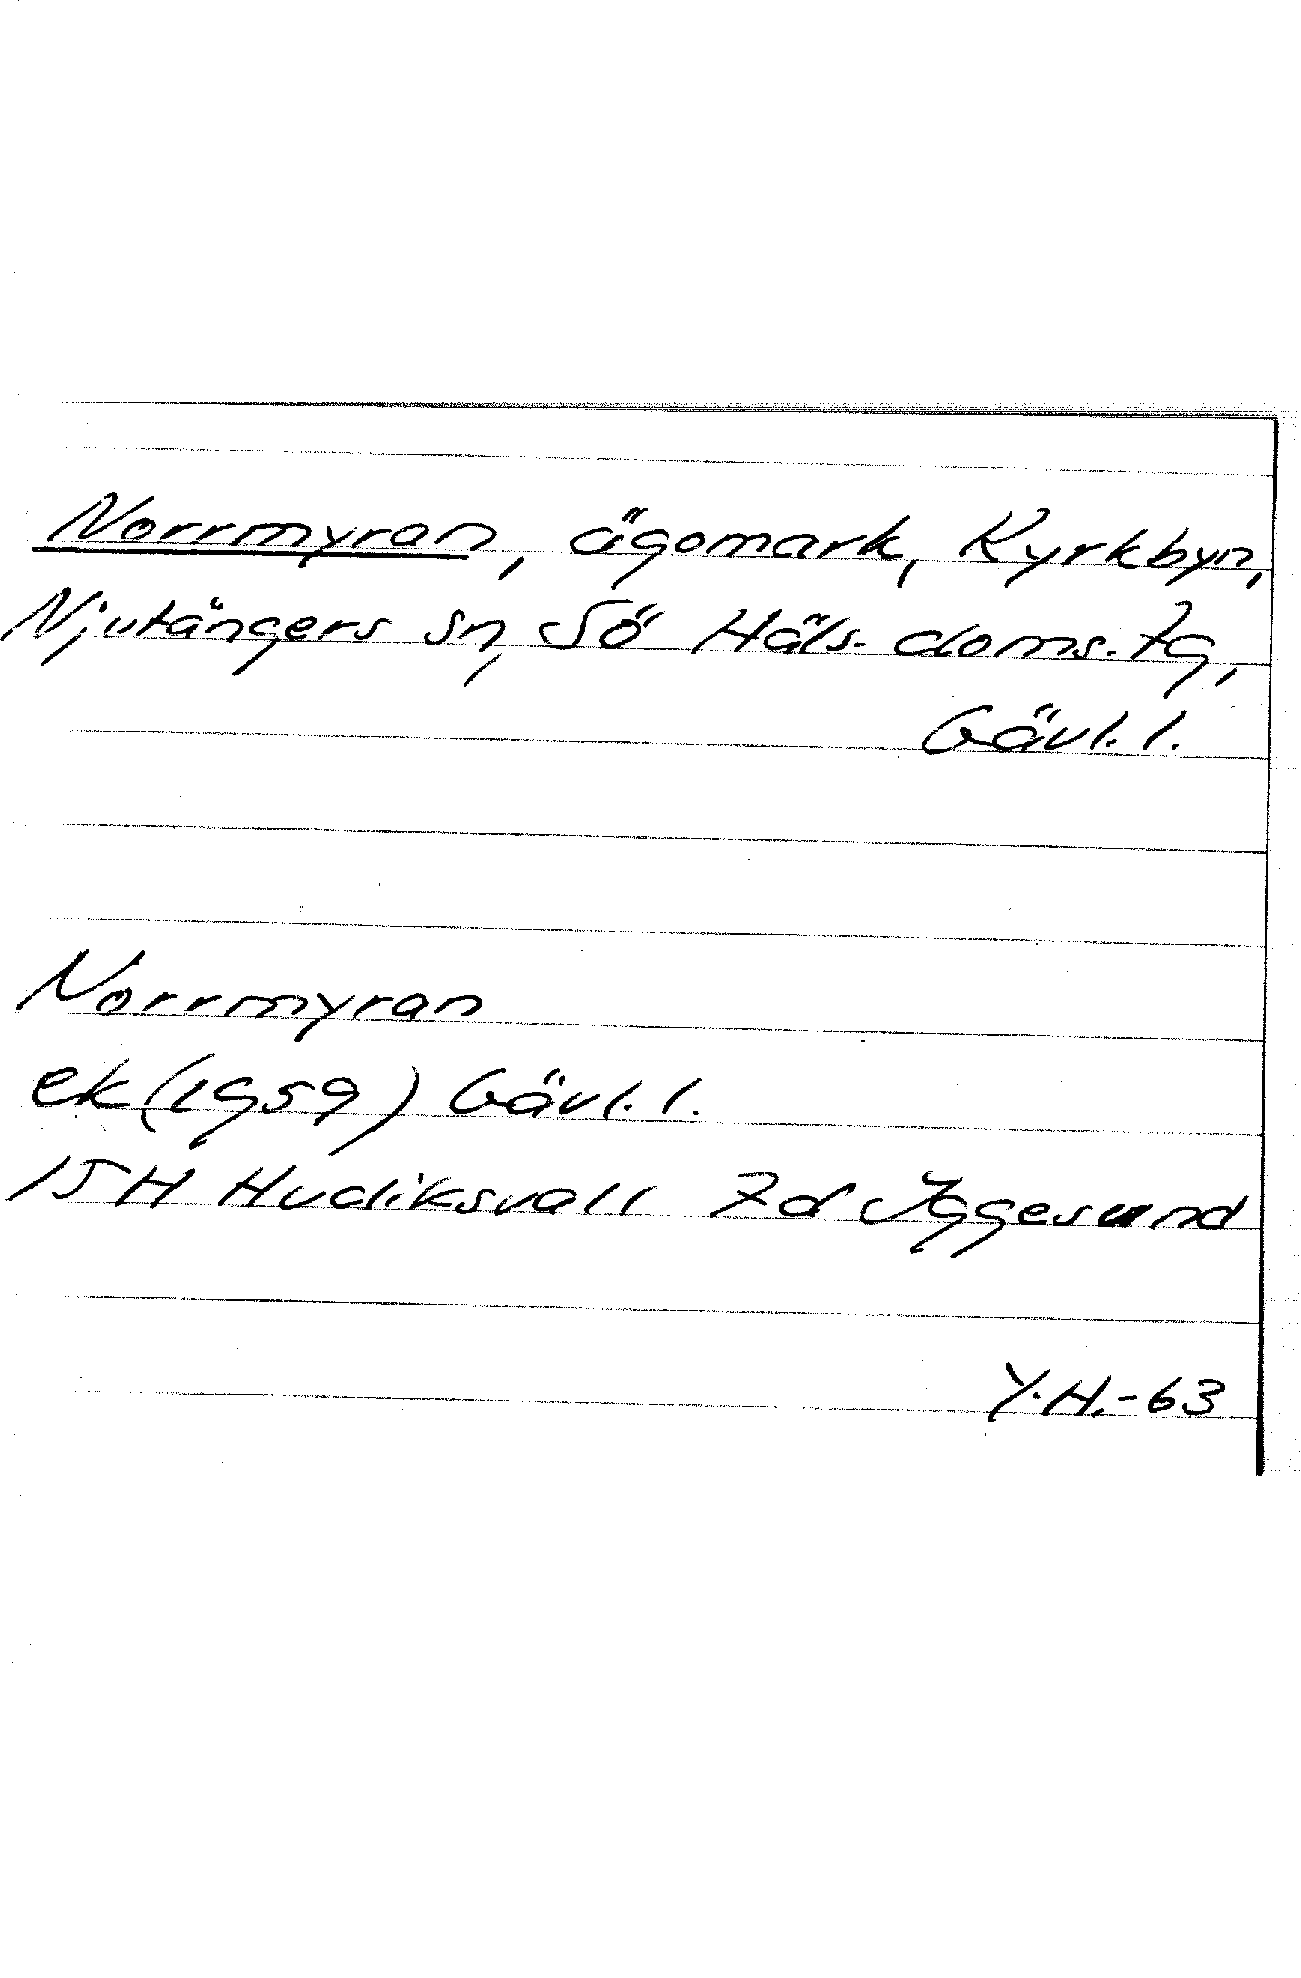 Norrmyran, ägomark, Kyrkbyn,
Njutångers sn, Sö Häls. doms. tg,
Gävl. l.
Norrmyran
ek (1959) Gävl. l.
15H Hudiksvall 7d Iggesund
Y.H.-63